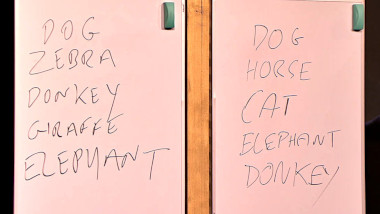 DOG
ZEBRA
DONKEY
GIRAFFE
ELEPHANT
DOG
HORSE
CAT
ELEPHANT
DONKEY